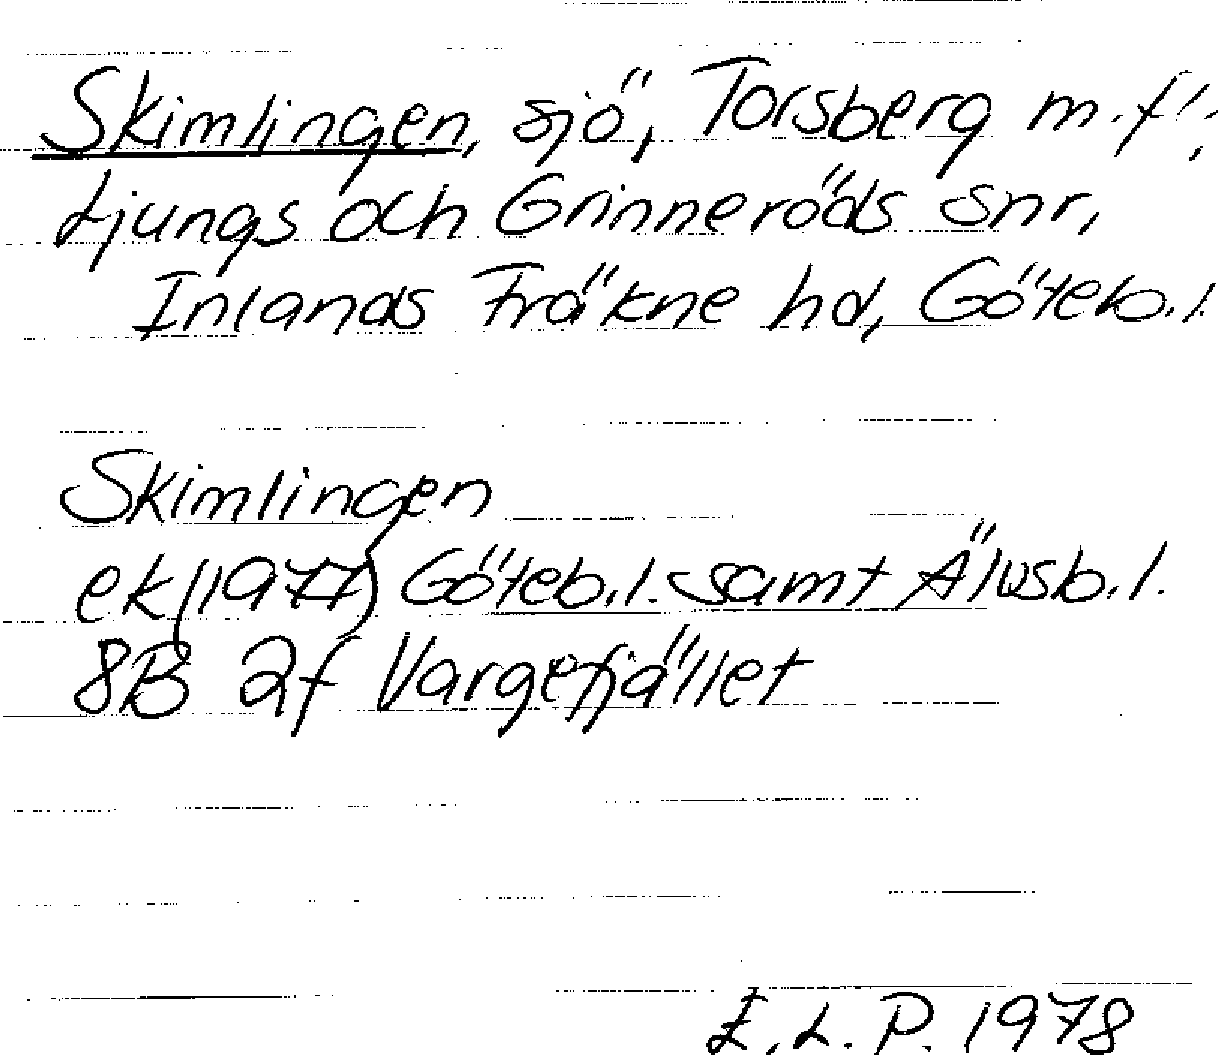 Skimlingen, sjö, Torsberg m.fl.,
Ljungs och Grinneröds snr,
Inlands Fräkne hd, Göteb.l.
Skimlingen
ek (1977) Göteb.l. samt Älvsb.l.
8B 2f Vargefjället
E.L.P. 1978